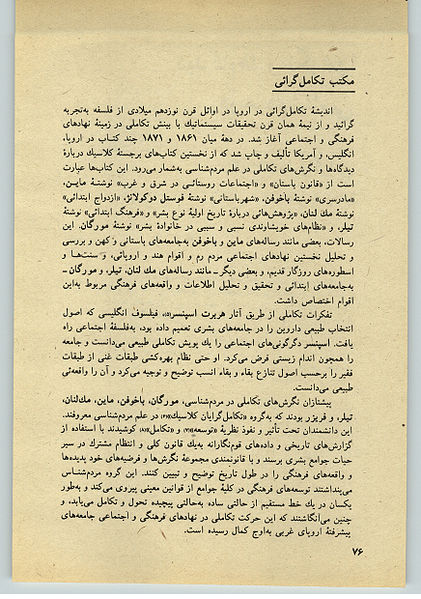 مکتب تکامل‌گرائی
اندیشهٔ تکامل‌گرائی در اروپا در اوائل قرن نوزدهم میلادی از فلسفه به‌تجربه
گرائید و از نیمهٔ همان قرن تحقیقات سیستماتیك با بینش تکاملی در زمینهٔ نهادهای
فرهنگی و اجتماعی آغاز شد. در دههٔ میان ۱۸۶۱ و ۱۸۷۱ چند کتاب در اروپا،
انگلیس، و آمریکا تألیف و چاپ شد که از نخستین کتاب‌های برجستهٔ کلاسیك دربارهٔ
دیدگاه‌ها و نگرش‌های تکاملی در علم مردم‌شناسی به‌شمار می‌رود. این کتاب‌ها عبارت
است از «قانون باستان» و «اجتماعات روستائی در شرق و غرب» نوشتهٔ ماین،
«مادرسری» نوشتهٔ باخوفن، «شهرباستانی» نوشتهٔ فوستل دوکولانژ، «ازدواج ابتدائی»
نوشتهٔ مك لنان، «پژوهش‌هائی دربارهٔ تاریخ اولیهٔ نوع بشر» و «فرهنگ ابتدائی» نوشتهٔ
تیلر، و «نظام‌های خویشاوندی نسبی و سببی در خانوادهٔ بشر» نوشتهٔ مورگان. این
رسالات، بعضی مانند رساله‌های ماین و باخوفن به‌جامعه‌های باستانی و کهن و بررسی
و تحلیل نخستین نهادهای اجتماعی مردم رم و اقوام هند و اروپائی، و سنت‌ها و
اسطوره‌های روزگار قدیم، و بعضی دیگر ـ مانند رساله‌های مك لنان، تیلر، و مورگان ـ
به‌جامعه‌های ابتدائی و تحقیق و تحلیل اطلاعات و واقعه‌های فرهنگی مربوط به‌این
اقوام اختصاص داشت.
تفکرات تکاملی از طریق آثار هربرت اسپنسر، فیلسوف انگلیسی که اصول
انتخاب طبیعی داروین را در جامعه‌های بشری تعمیم داده بود، به‌فلسفهٔ اجتماعی راه
یافت. اسپنسر دگرگونی‌های اجتماعی را یك پویش تکاملی طبیعی می‌دانست و جامعه
را همچون اندام زیستی فرض می‌کرد. او حتی نظام بهره‌کشی طبقات غنی از طبقات
فقیر را برحسب اصول تنازع بقاء و بقاء انسب توضیح و توجیه می‌کرد و آن را واقعه‌ئی
طبیعی می‌دانست.
پیشتازان نگرش‌های تکاملی در مردم‌شناسی، مورگان، باخوفن، ماین، مك‌لنان،
تیلر، و فریزر بودند که به‌گروه «تکامل‌گرایان کلاسیك» در علم مردم‌شناسی معروفند.
این دانشمندان تحت تأثیر و نفوذ نظریهٔ «توسعه» و «تکامل» کوشیدند با استفاده از
گزارش‌های تاریخی و داده‌های قوم‌نگارانه به‌یك قانون کلی و انتظام مشترك در سیر
حیات جوامع بشری برسند و با قانونمندی مجموعهٔ نگرش‌ها و فرضیه‌های خود پدیده‌ها
و واقعه‌های فرهنگی را در طول تاریخ توضیح و تبیین کنند. این گروه مردم‌شناس
می‌پنداشتند توسعه‌های فرهنگی در کلیهٔ جوامع از قوانین معینی پیروی می‌کند و به‌طور
یکسان در یك خط مستقیم از حالتی ساده به‌حالتی پیچیده تحول و تکامل می‌یابد، و
چنین می‌انگاشتند که این حرکت تکاملی در نهادهای فرهنگی و اجتماعی جامعه‌های
پیشرفتهٔ اروپای غربی به‌اوج کمال رسیده است.
۷۶